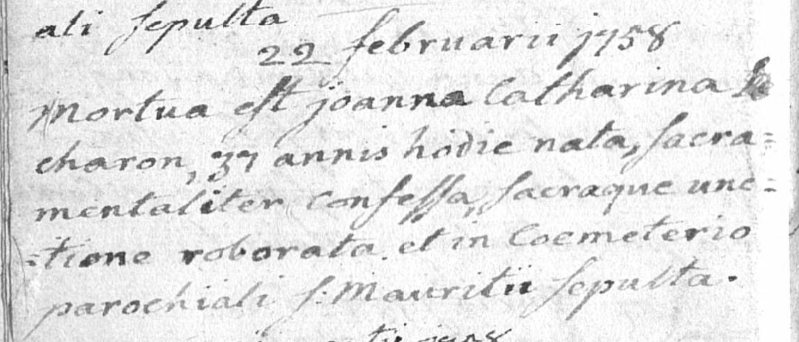 ali sepulta
22 februarii 1758
mortua est joanna Catharina
charon, 37 annis hodie nata, sacra=
mentaliter confessa, sacraque unc=
=tione roborata. et in Coemeterio
parochiali s: Mauritii sepulta.